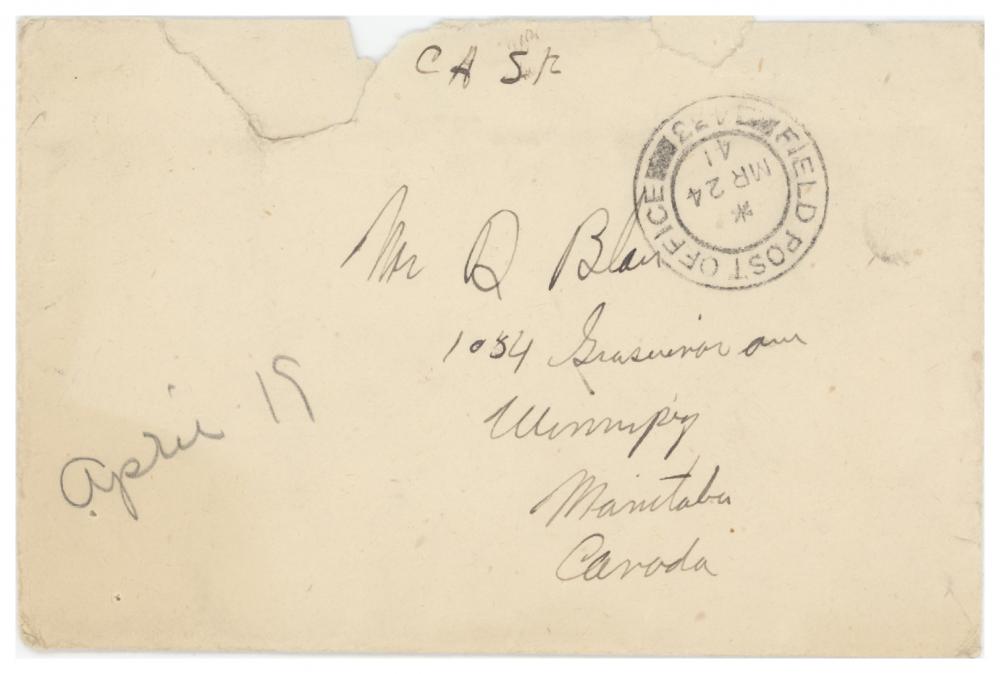 CASF
FIELD POST OFFICE
MR 24
41
Mr D Blair
1034 Grosvenor ave
Winnipeg
Manitoba
Canada
April 19